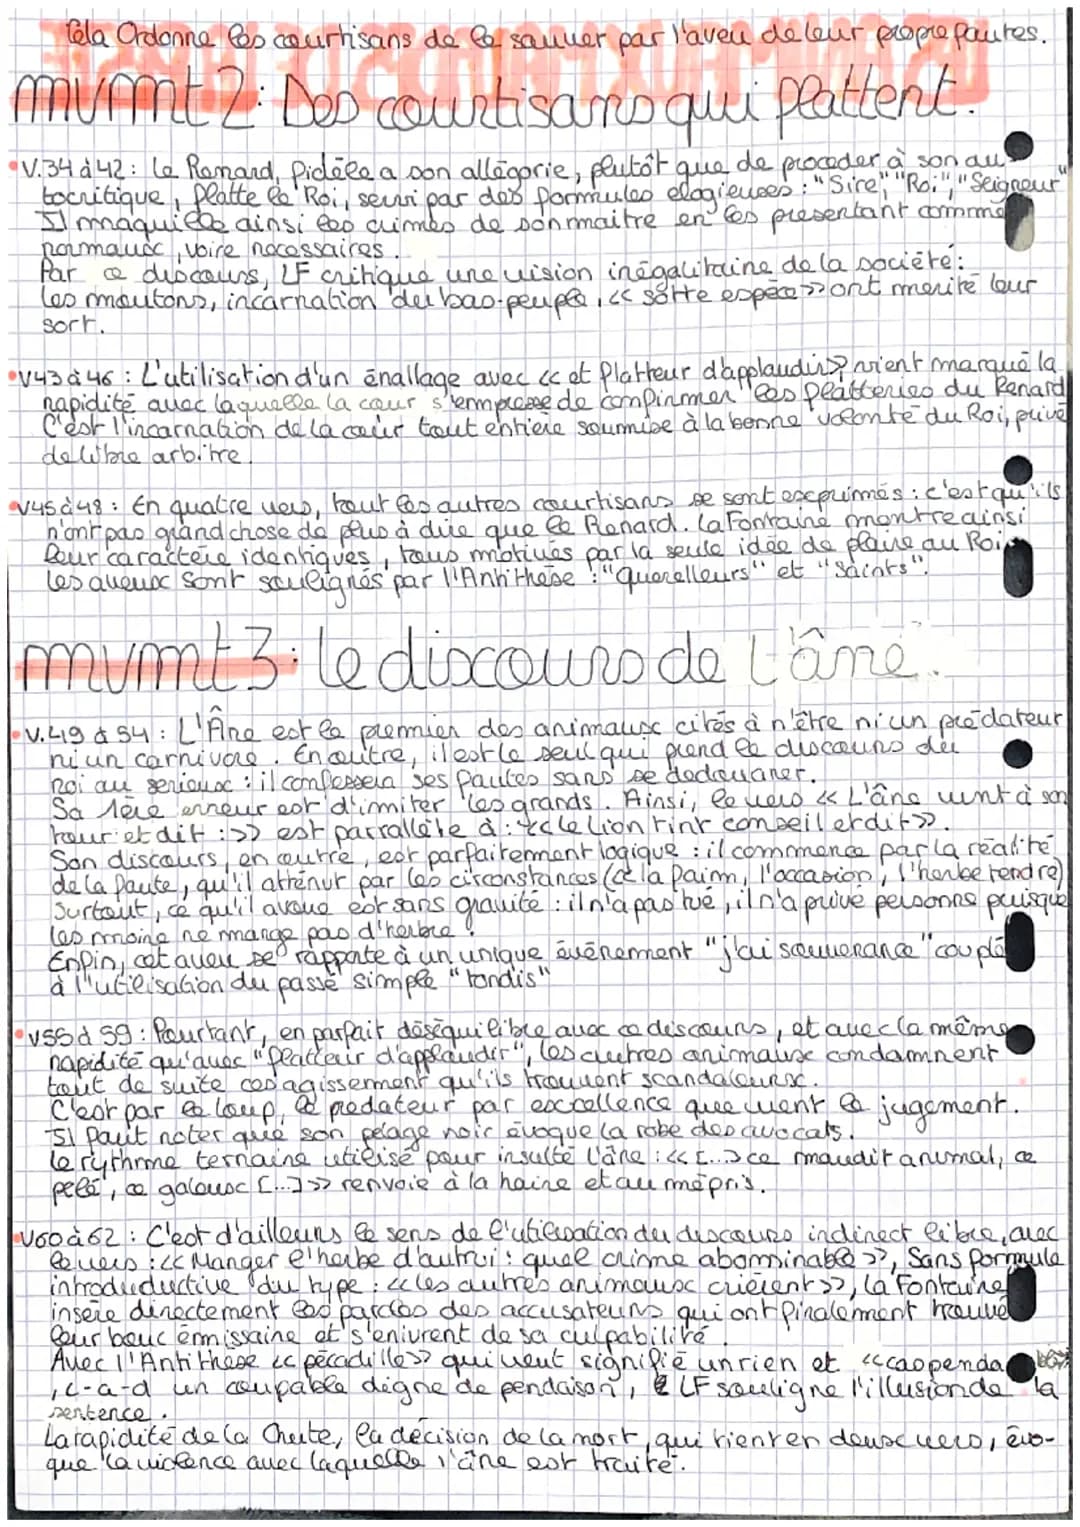 Cela Ordonne les courtisans de le sauver par l'aveu de leur propre fautes.
mvmt 2: Des courtisans qui flattent.
• V.34 à 42 : Le Renard, fidèle a son allégorie, plutôt que de proceder à son au-
tocritique, flatte le Roi, servi par des formules elogieuses : "Sire", "Roi", "Seigneur"
Il maquille ainsi les crimes de son maitre en les presentant comme
normaux, voire necessaires.
Par ce discours, LF critique une vision inégalitaire de la société :
les moutons, incarnation du bas-peuple, << sotte espèce >> ont merité leur
sort.
• V43 à 46 : L'utilisation d'un énallage avec << et flatteur d'applaudir >> vient marqué la
rapidité avec laquelle la cour s'empresse de confirmer les flatteries du Renard
C'est l'incarnation de la cour tout entière soumise à la bonne volonté du Roi, privé
de libre arbitre.
• V45 à 48 : En quatre vers, tout les autres courtisans se sont exprimés : c'est qu'ils
n'ont pas grand chose de plus à dire que le Renard. La Fontaine montre ainsi
leur caractère identiques, tous motivés par la seule idée de plaire au Roi
les aveux sont soulignés par l'Antithèse : "Querelleurs" et "Saints".
mvmt 3: le discours de L'âne.
• V.49 à 54 : L'Âne est le premier des animaux cités à n'être ni un prédateur
ni un carnivore. En outre, il est le seul qui prend le discours du
roi au serieux : il confessera ses fautes sans se dedouaner.
Sa 1ère erreur est d'immiter les grands. Ainsi, le vers << L'âne vint à son
tour et dit : >> est parrallèle à : << Le Lion tint conseil et dit >>.
Son discours, en outre, est parfaitement logique : il commence par la réalité
de la faute, qu'il atténut par les circonstances (<< la faim, l'occasion, l'herbe tendre)
Surtout, ce qu'il avoue est sans gravité : il n'a pas tué, il n'a privé personne puisque
les moine ne mange pas d'herbe !
Enfin, cet aveu se rapporte à un unique événement "j'ai souvenance" couplé
à l'utilisation du passé simple "tondis"
• V55 à 59 : Pourtant, en parfait déséquilibre avec ce discours, et avec la même
rapidité qu'avec "flatteur d'applaudir", les autres animaux condamnent
tout de suite ces agissement qu'ils trouvent scandaleux.
C'est par le loup, le prédateur par excellence que vient le jugement.
Il faut noter que son pelage noir évoque la robe des avocats.
Le rythme ternaire utilisé pour insulté l'âne : << [...] ce maudit animal, ce
pelé, ce galoux [...] >> renvoie à la haine et au mépris.
• V60 à 62 : C'est d'ailleurs le sens de l'utilisation du discours indirect libre, avec
le vers : << Manger l'herbe d'autrui : quel crime abominable >>, Sans formule
introduductive du type : << les autres animaux crièrent >>, La Fontaine
insère directement les paroles des accusateurs qui ont finalement trouvé
leur bouc émissaire et s'enivrent de sa culpabilité.
Avec l'Antithèse << pécadille >> qui veut signifié un rien et << cas penda
, c-a-d un coupable digne de pendaison, LF souligne l'illusion de la
sentence.
La rapidité de la Chute, la décision de la mort, qui tient en deux vers, évo-
que la violence avec laquelle l'âne est traité.